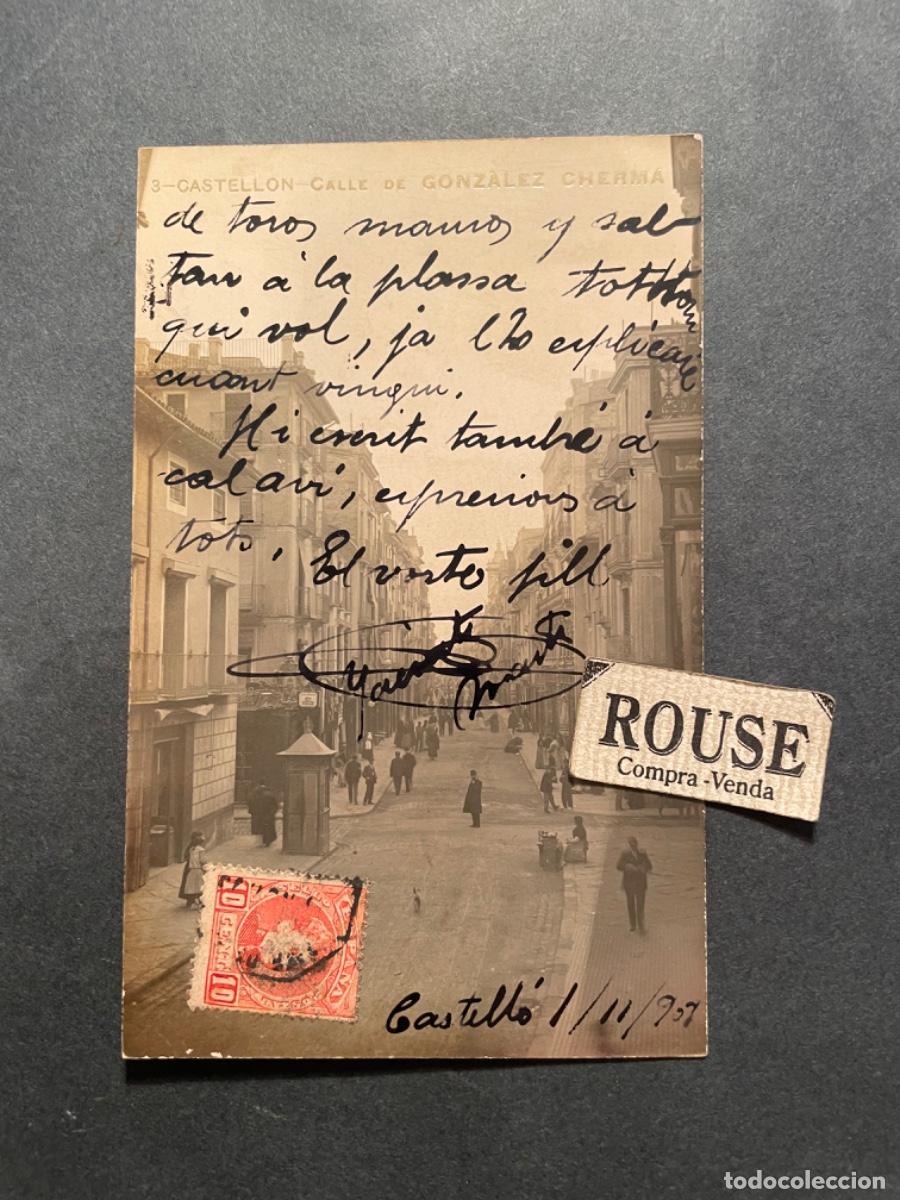 3-CASTELLON-CALLE DE GONZÀLEZ CHERMÁ
de toros mauros y sal
tan á la plassa tothom
qui vol, ja l'ho esplicaré
cuant vingui.
Hi escrit també á
cal avi, espresions á
tots, El vostre fill
Castelló 1/11/907
10 CENTS 10
ESPAÑA
ROUSE
Compra -Venda
todocoleccion